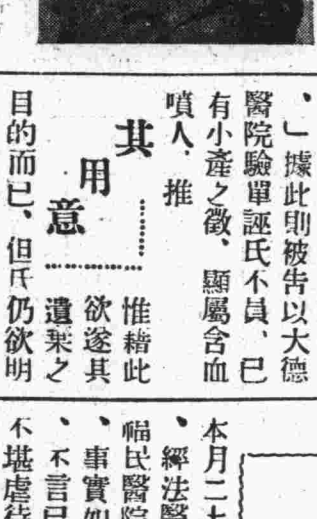 、」據此則被告以大德
醫院驗單誣氏不貞、已
有小產之徵、顯屬含血
噴人、推
其用意
惟藉此
欲遂其
遺棄之
目的而已、但氏仍欲明
本月二七
、經法醫
福民醫院
、事實如
、不言已
不堪虐待